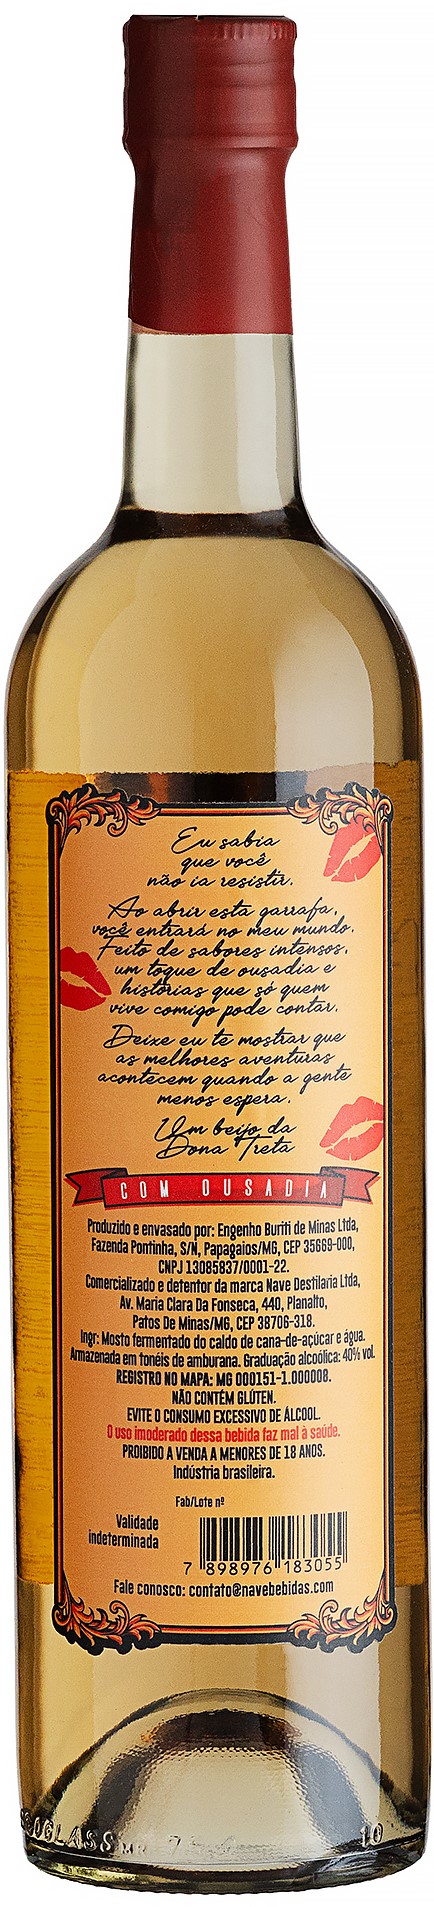 Eu sabia
que você
não ia resistir.
Ao abrir esta garrafa,
você entrará no meu mundo.
Feito de sabores intensos,
um toque de ousadia e
histórias que só quem
vive comigo pode contar.
Deixe eu te mostrar que
as melhores aventuras
acontecem quando a gente
menos espera.
Um beijo da
Dona Treta
COM OUSADIA
Produzido e envasado por: Engenho Buriti de Minas Ltda,
Fazenda Pontinha, S/N, Papagaios/MG, CEP 35669-000,
CNPJ 13085837/0001-22.
Comercializado e detentor da marca Nave Destilaria Ltda,
Av. Maria Clara Da Fonseca, 440, Planalto,
Patos De Minas/MG, CEP 38706-318.
Ingr: Mosto fermentado do caldo de cana-de-açúcar e água.
Armazenada em tonéis de amburana. Graduação alcoólica: 40% vol.
REGISTRO NO MAPA: MG 000151-1.000008.
NÃO CONTÉM GLÚTEN.
EVITE O CONSUMO EXCESSIVO DE ÁLCOOL.
O uso imoderado dessa bebida faz mal à saúde.
PROIBIDO A VENDA A MENORES DE 18 ANOS.
Indústria brasileira.
Fab/Lote nº
Validade
indeterminada
7 898976 183055
Fale conosco: contato@navebebidas.com
10